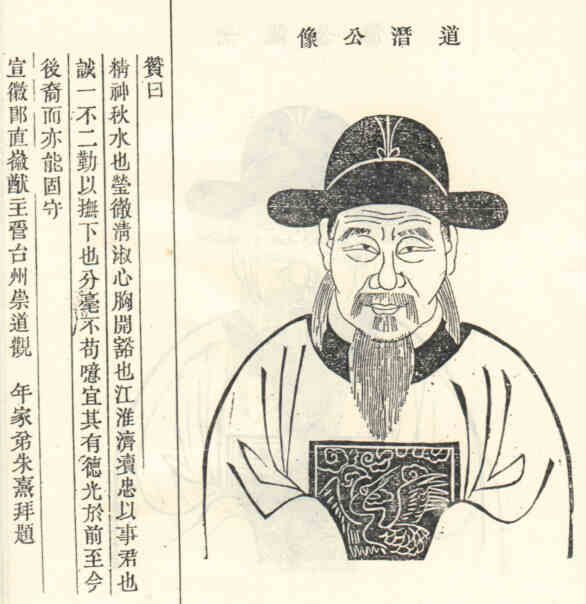 道潛公像
贊曰
精神秋水也瑩徹清淑心胸開豁也江淮濟瀆忠以事君也
誠一不二勤以撫下也分毫不苟噫宜其有德光於前至今
後裔而亦能固守
宣徽郎直徽猷主管台州崇道觀　年家弟朱熹拜題